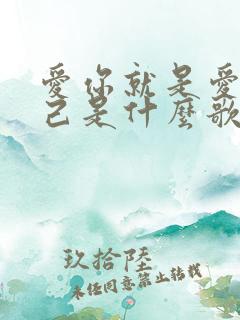 愛你就是愛
己是什麼歌
玖拾陸
未经同意禁止转载